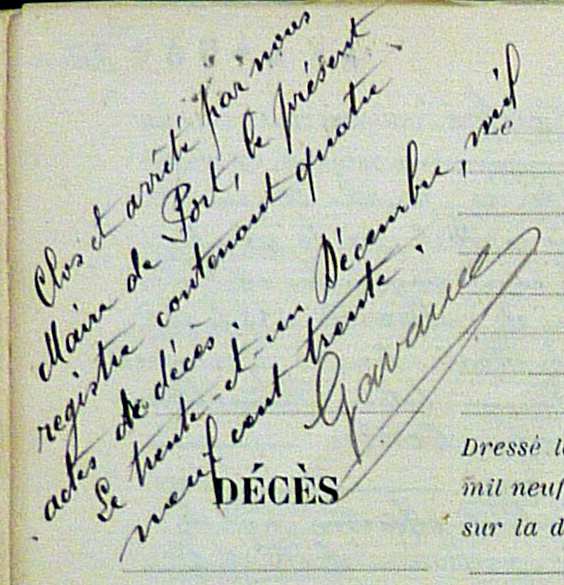 Clos et arrêté par nous
Maire de Port, le présent
registre contenant quatre
actes de décès.
Le trente-et-un Décembre, mil
neuf cent trente.
DÉCÈS
Le
Dressé l
mil neuf
sur la d